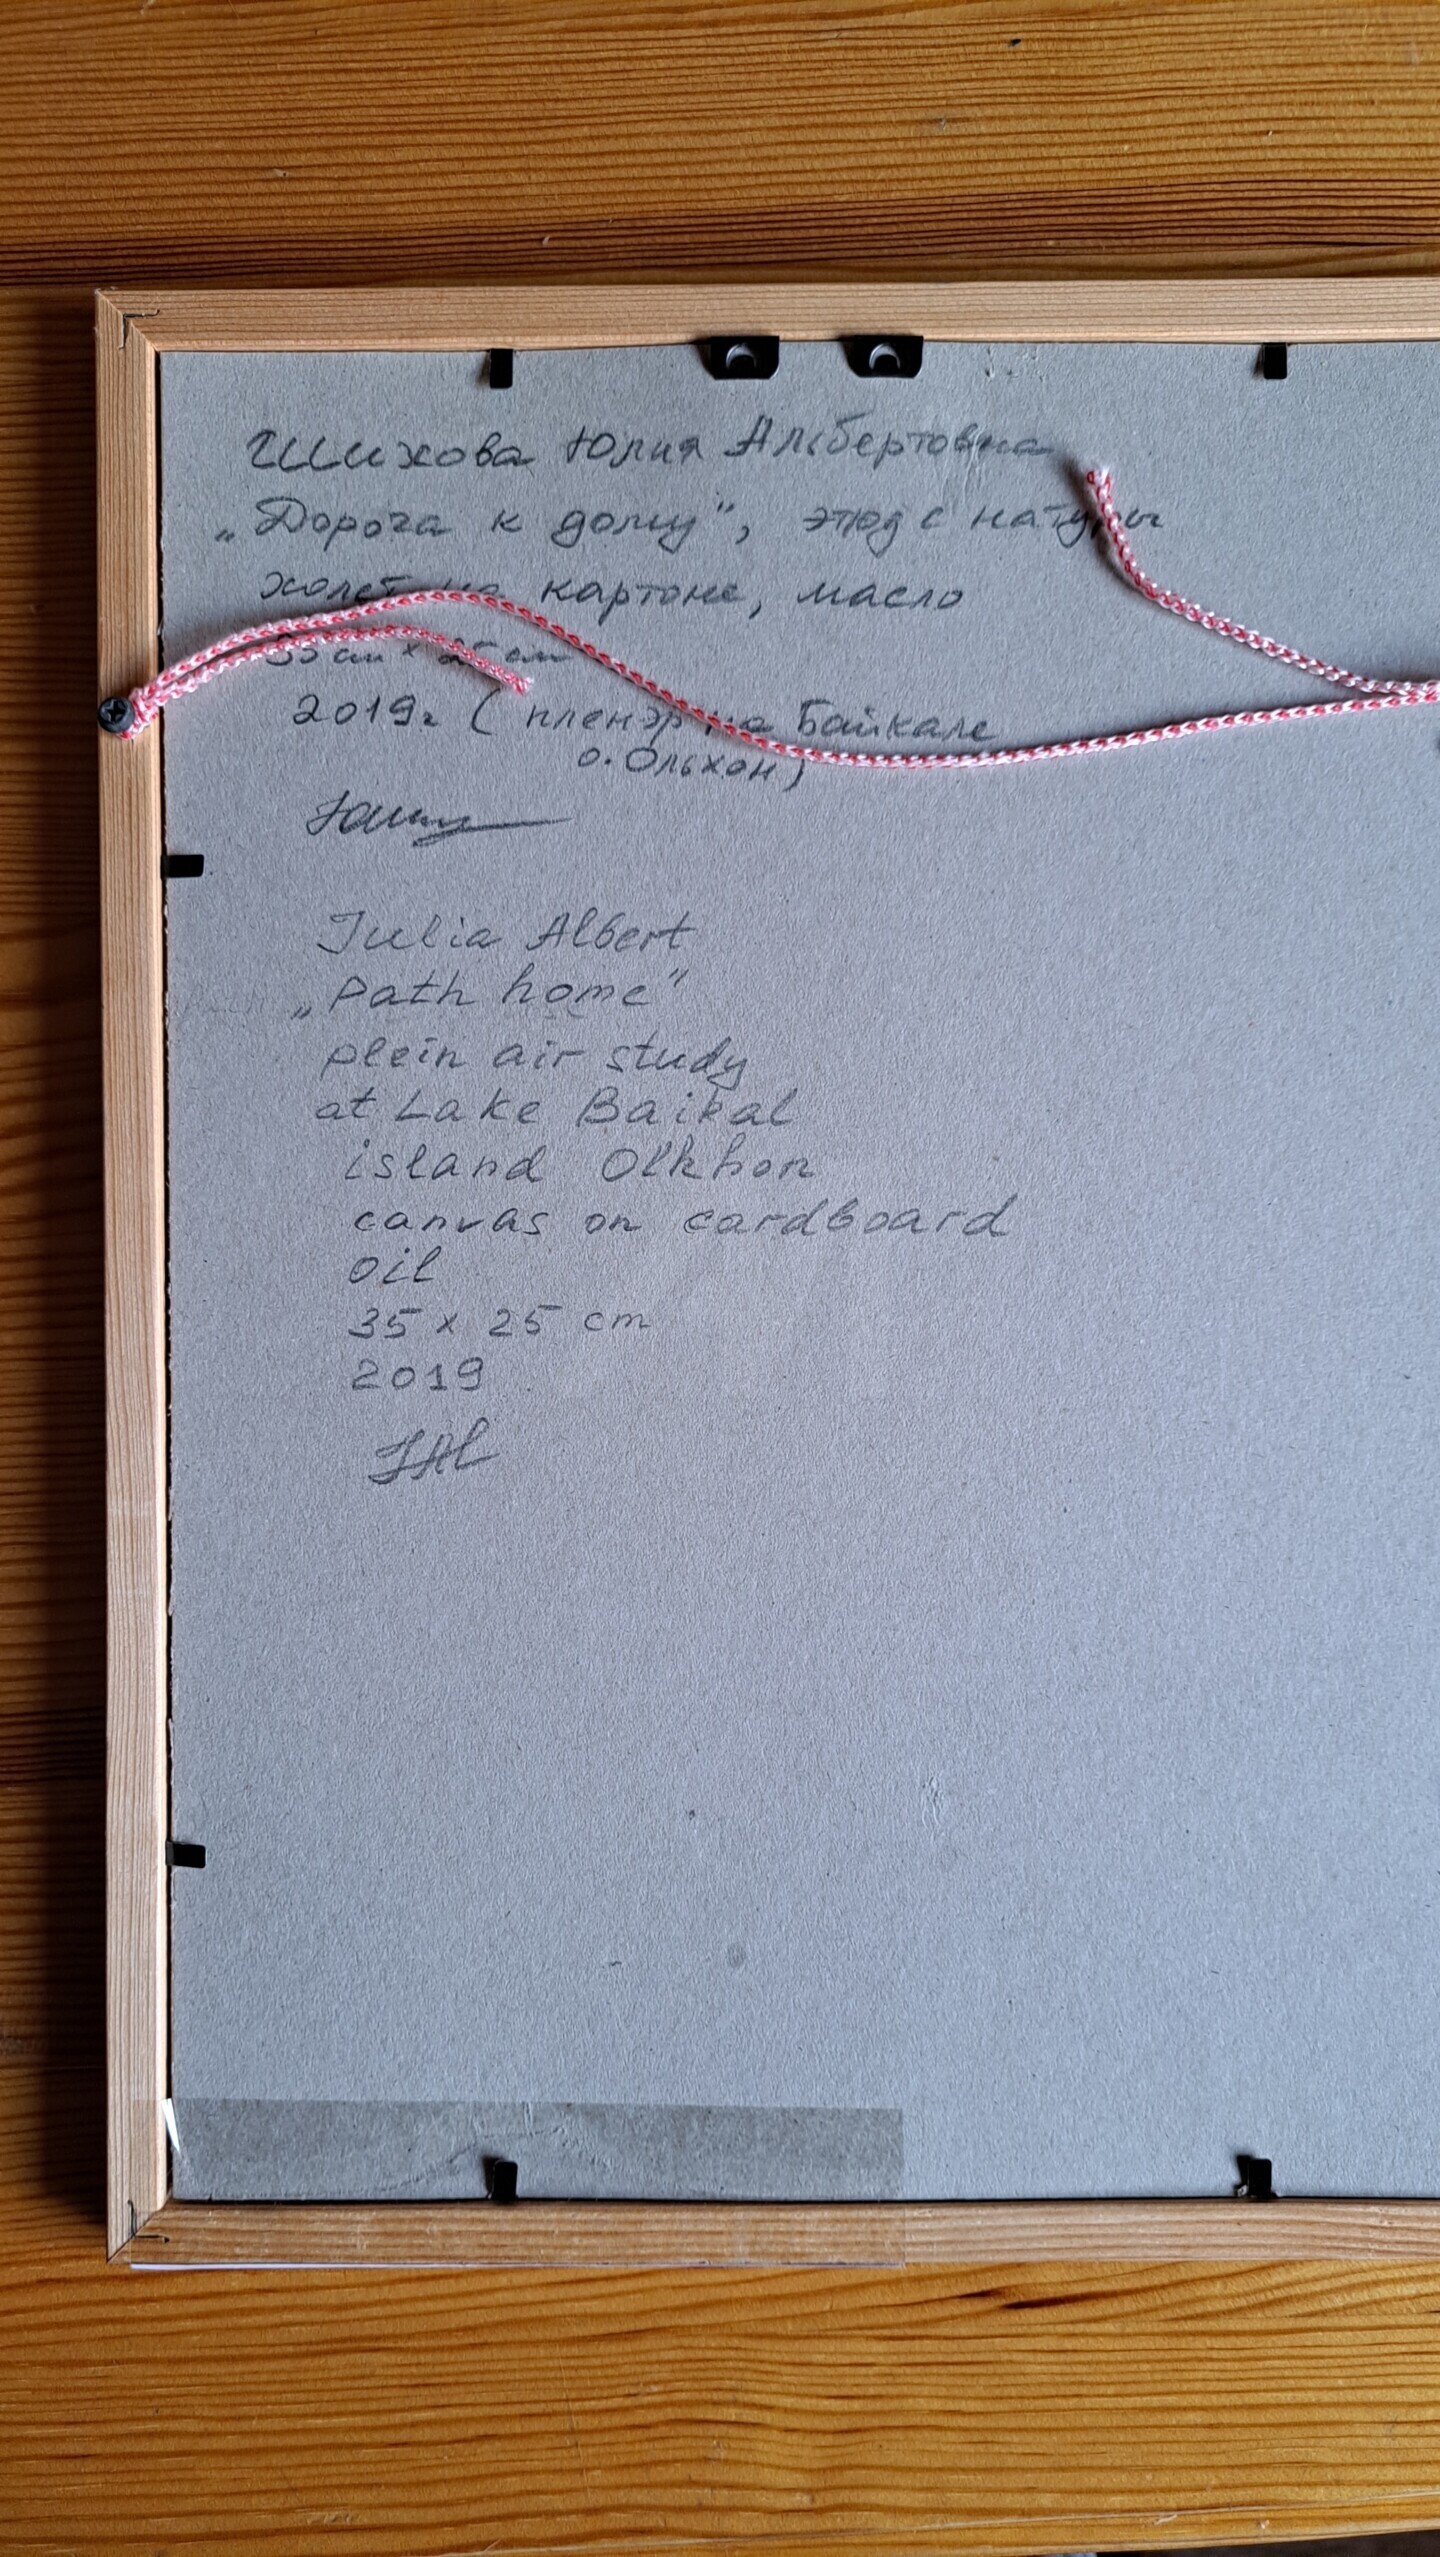 Шихова Юлия Альбертовна
„Дорога к дому", этюд с натуры
холст на картоне, масло
35 см × 25 см
2019г (пленэр на Байкале
о. Ольхон)
Julia Albert
„Path home"
plein air study
at Lake Baikal
island Olkhon
canvas on cardboard
oil
35 x 25 cm
2019